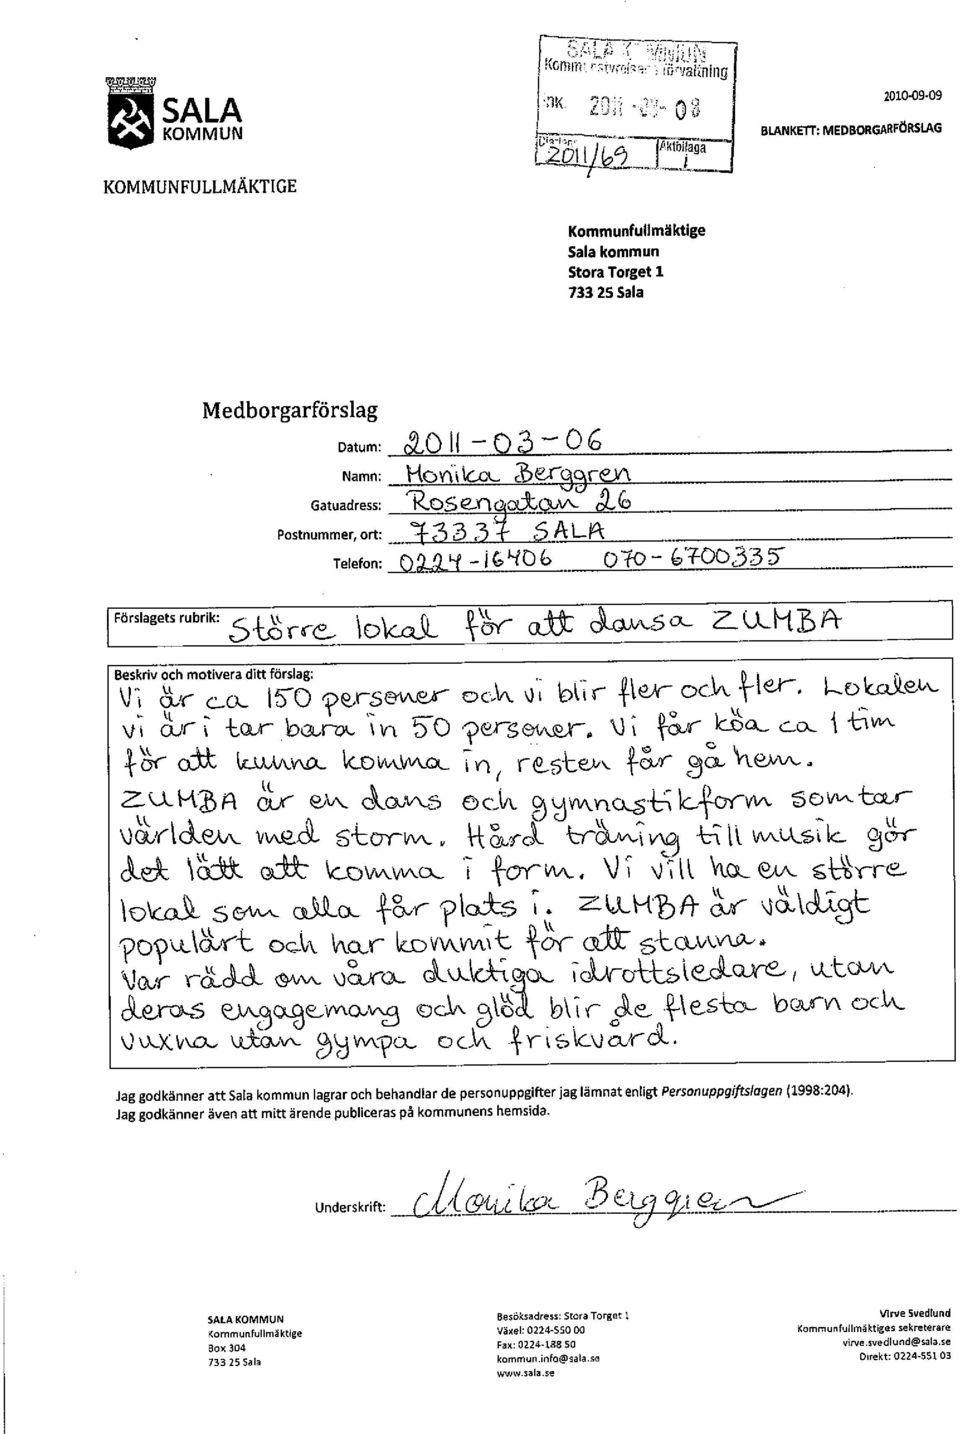 SALA
KOMMUN
KOMMUNFULLMÄKTIGE
SALA KOMMUN
Kommunstyrelsens förvaltning
Ink. 2011 -03- 08
Diarienr
2011/69
Aktbilaga
1
2010-09-09
BLANKETT: MEDBORGARFÖRSLAG
Kommunfullmäktige
Sala kommun
Stora Torget 1
733 25 Sala
Medborgarförslag
Datum: 2011-03-06
Namn: Monika Berggren
Gatuadress: Rosengatan 26
Postnummer, ort: 73337 SALA
Telefon: 0224-16406 070-6700335
Förslagets rubrik: Större lokal för att dansa ZUMBA
Beskriv och motivera ditt förslag:
Vi är ca 150 personer och vi blir fler och fler. Lokalen
vi är i tar bara in 50 personer. Vi får köa ca 1 tim
för att kunna komma in, resten får gå hem.
ZUMBA är en dans och gymnastikform som tar
världen med storm. Hård träning till musik gör
det lätt att komma i form. Vi vill ha en större
lokal som alla får plats i. ZUMBA är väldigt
populärt och har kommit för att stanna.
Var rädd om våra duktiga idrottsledare, utan
deras engagemang och glöd blir de flesta barn och
vuxna utan gympa och friskvård.
Jag godkänner att Sala kommun lagrar och behandlar de personuppgifter jag lämnat enligt Personuppgiftslagen (1998:204).
Jag godkänner även att mitt ärende publiceras på kommunens hemsida.
Underskrift: Monika Berggren
SALA KOMMUN
Kommunfullmäktige
Box 304
733 25 Sala
Besöksadress: Stora Torget 1
Växel: 0224-550 00
Fax: 0224-188 50
kommun.info@sala.se
www.sala.se
Virve Svedlund
Kommunfullmäktiges sekreterare
virve.svedlund@sala.se
Direkt: 0224-551 03